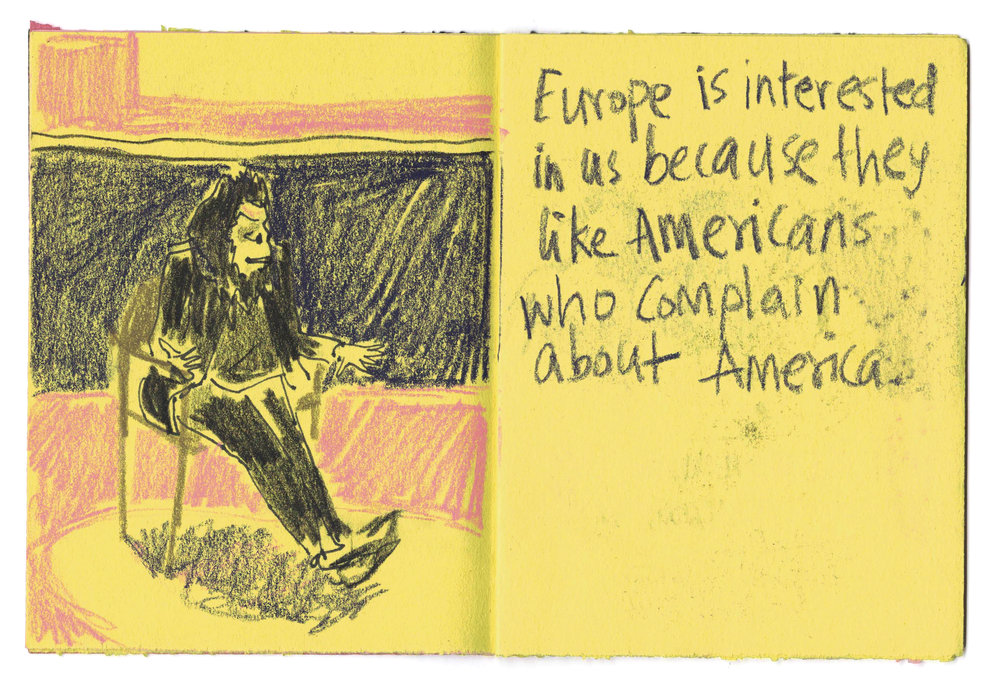 Europe is interested
in us because they
like Americans
who complain
about America.